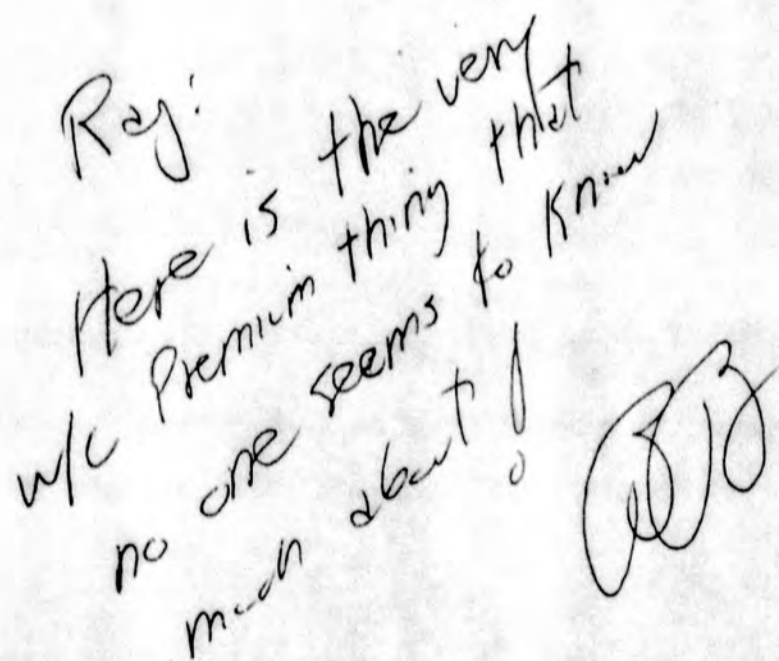 Ray:
Here is the very
w/c Premium thing that
no one seems to know
much about!
BB